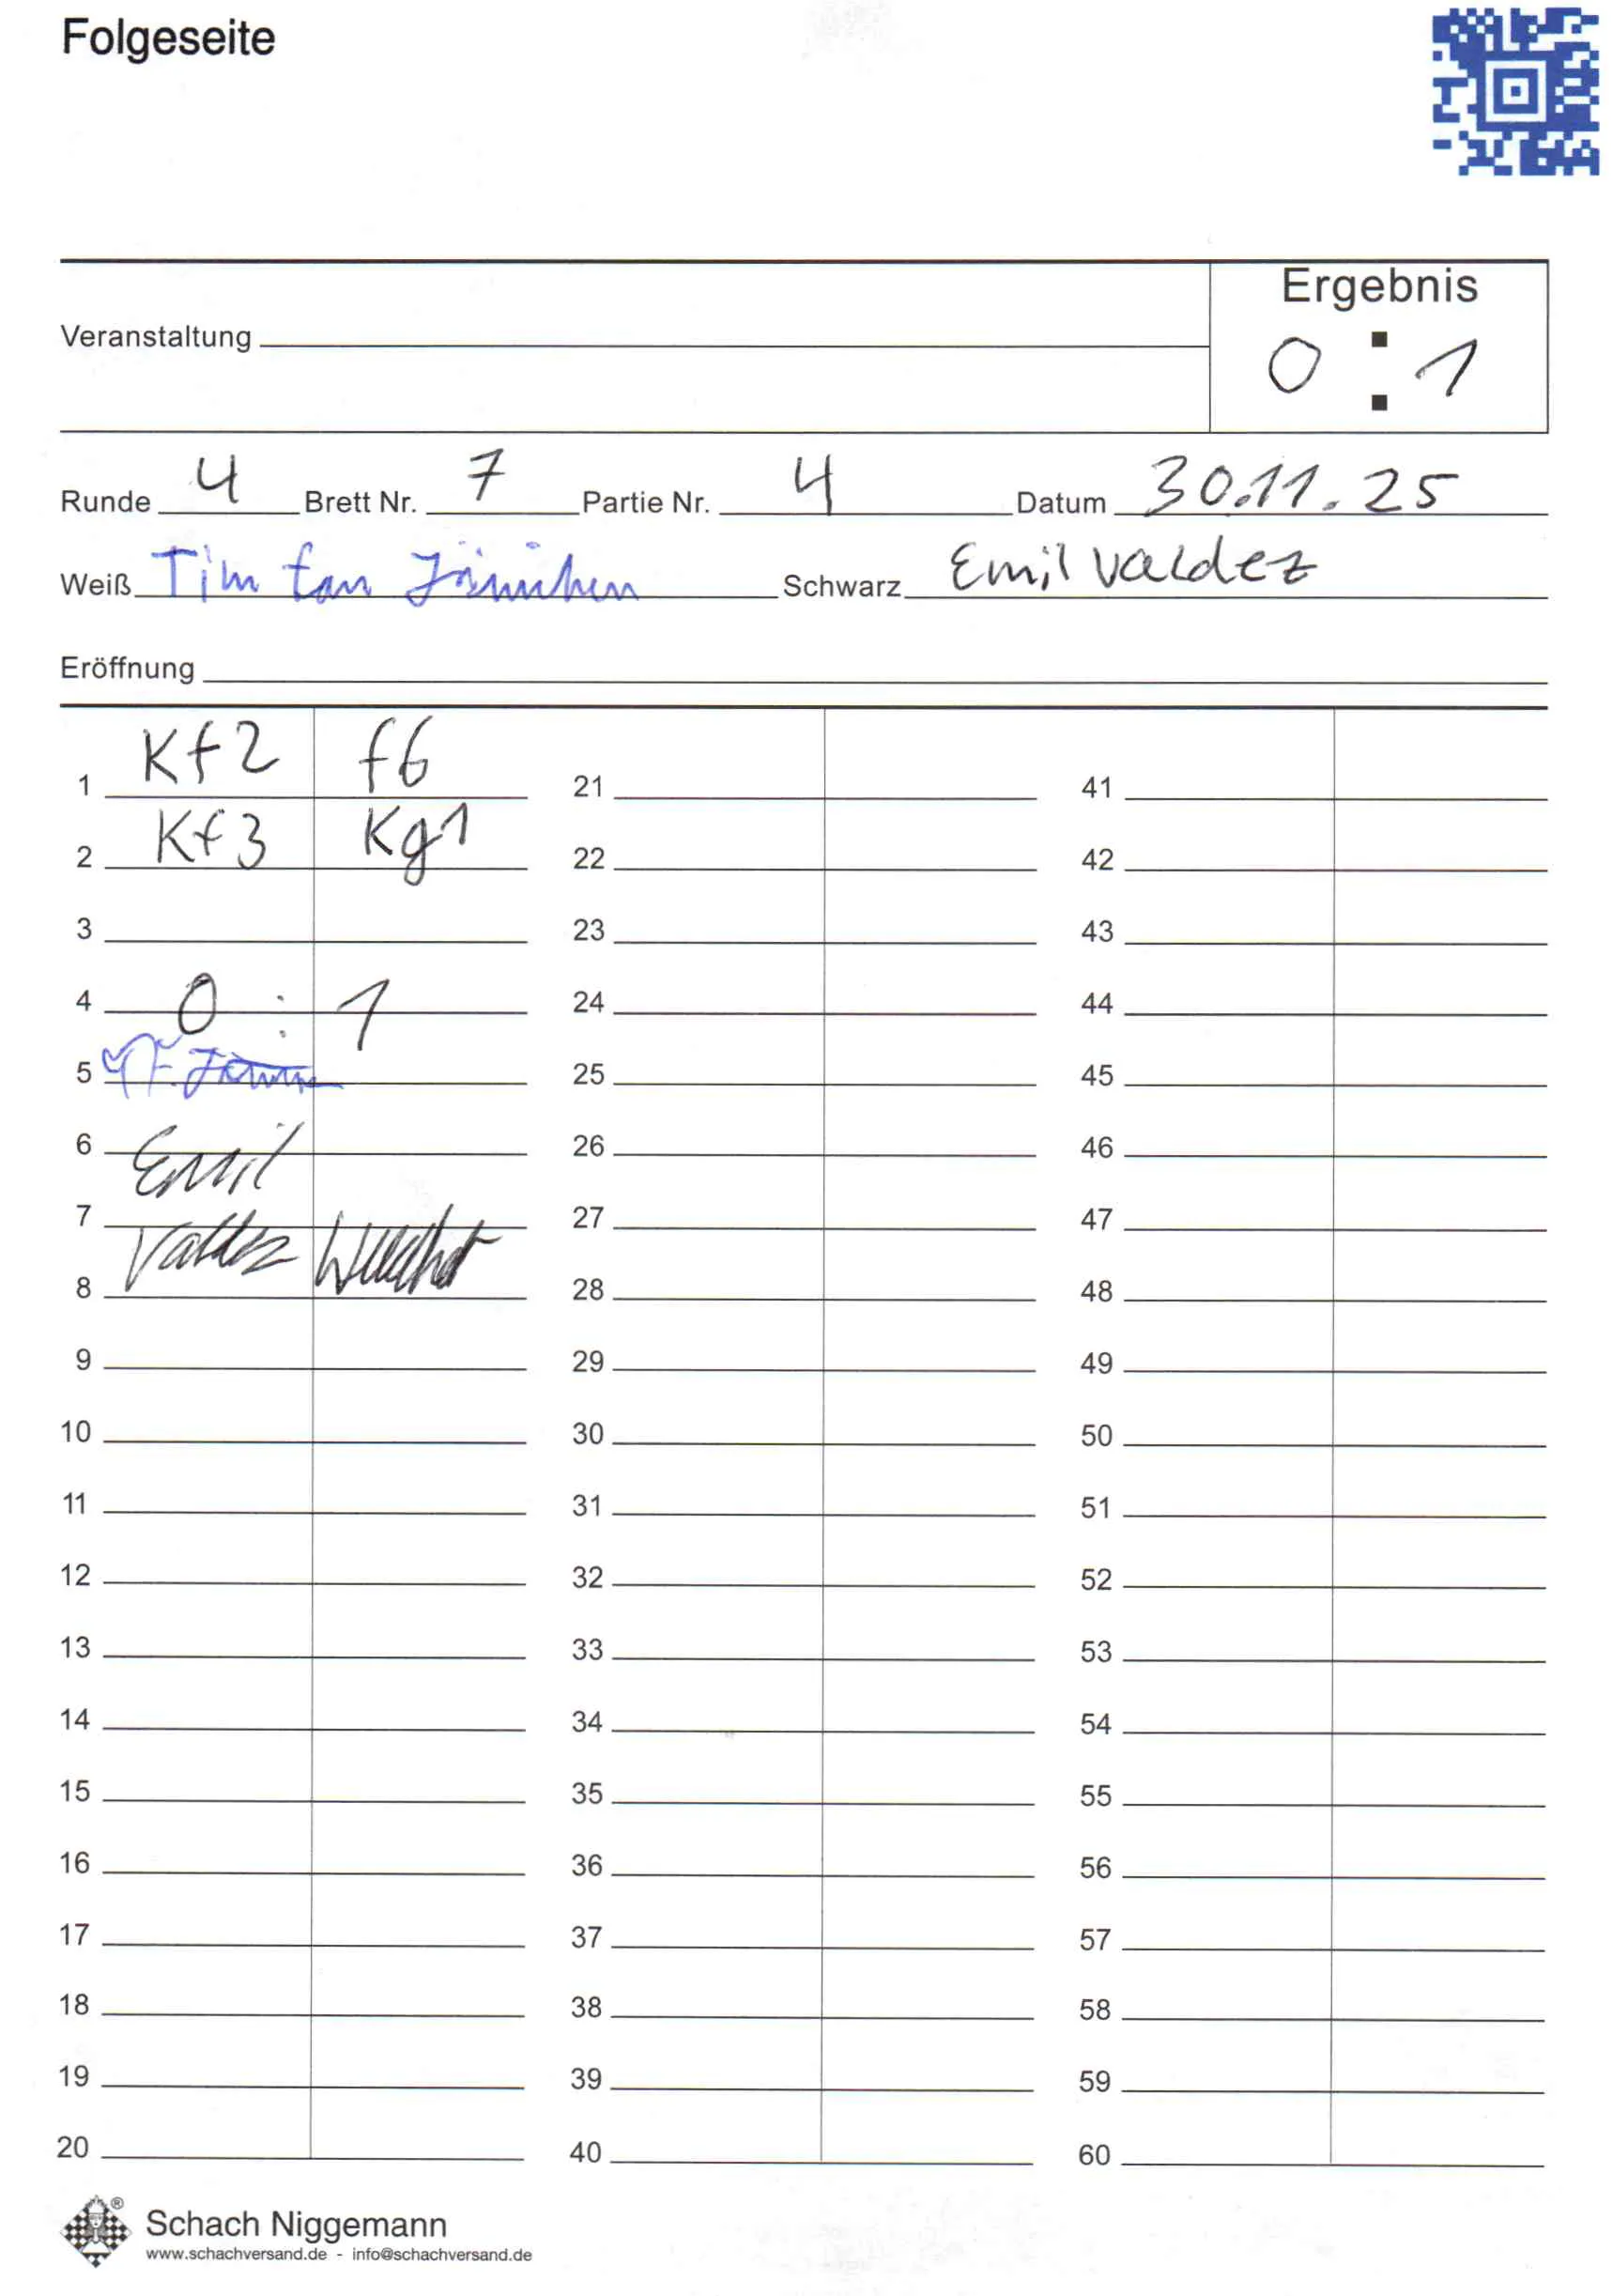 Folgeseite
Ergebnis
Veranstaltung
0 : 1
Runde 4 Brett Nr. 7 Partie Nr. 4 Datum 30.11.25
Weiß Tim Schwarz Emil Valdez
Eröffnung
1 Kf2 f6 21 41
2 Kf3 Kg1 22 42
3 23 43
4 0 : 1 24 44
5 25 45
6 Emil 26 46
7 27 47
Valdez
8 28 48
9 29 49
10 30 50
11 31 51
12 32 52
13 33 53
14 34 54
15 35 55
16 36 56
17 37 57
18 38 58
19 39 59
20 40 60
®
Schach Niggemann
www.schachversand.de - info@schachversand.de